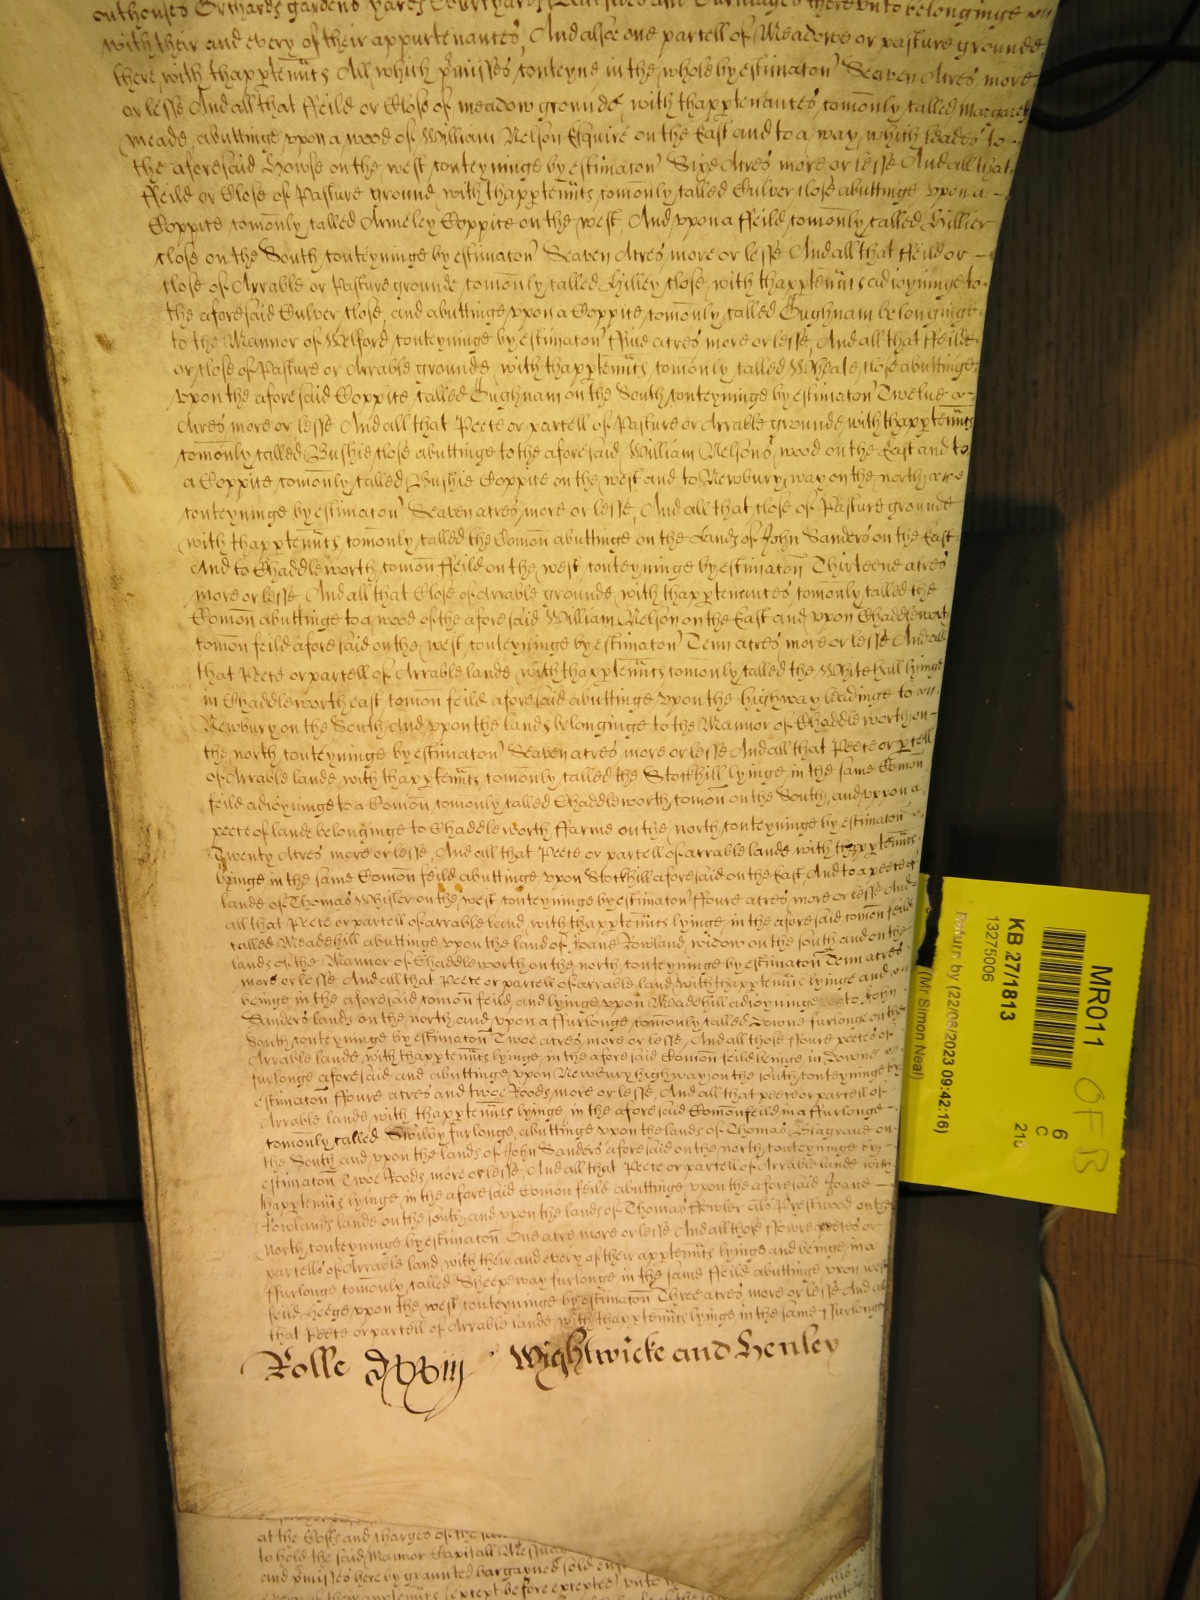 outhouses Orchards gardens yards Courtyards thereunto belonginge
with their and every of their appurtenances, And alsoe one parcell of Meadowe or pasture grounde
there with thapptenñts All which pmisses conteyne in the whole by estimacon Seaven Acres more
or lesse And all that ffeild or Close of meadow grounde with thapptenances comonly called Margaret
meade, abuttinge upon a wood of William Nelson Esquire on the East and to a way, which leades to
the aforesaid Howse on the west conteyninge by estimacon Sixe Acres more or lesse And all that
ffeild or Close of Pasture ground with thapptenñts comonly called Culver close abuttinge upon a
Coppice comonly called Armeley Coppice on the west, And upon a ffeild comonly called Hillier
close on the South conteyninge by estimacon Seaven Acres more or lesse And all that ffeild or
close of Arrable or Pasture grounde comonly called Hilley close, with thapptenñts adioyninge to
the aforesaid Culver close, and abuttinge upon a Coppice comonly called Hughnam belonginge
to the Mannor of Welford, conteyninge by estimacon ffive acres more or lesse, And all that ffeilde
or close of Pasture or Arrable grounde with thapptenñts comonly called Wheate close abuttinge
upon the aforesaid Coppice called Hughnam on the South conteyninge by estimacon Twelve
Acres more or lesse And all that Peece or parcell of Pasture or Arrable grounde with thapptenñts
comonly called Bushie close abuttinge to the aforesaid William Nelsons wood on the East and to
a Coppice comonly called Bushie Coppice on the west and to Newbury way on the north
conteyninge by estimacon Seaven acres more or lesse, And all that close of Pasture grounde
with thapptenñts comonly called the Comon abuttinge on the Lands of John Sanders on the East
And to Chaddleworth comon ffeild on the west conteyninge by estimacon Thirteene acres
more or lesse And all that Close of Arrable grounde with thapptenances comonly called the
Comon abuttinge to a wood of the aforesaid William Nelson on the East and upon Chaddleworth
comon feild aforesaid on the west, conteyninge by estimacon Tenn acres more or lesse And all
that Peece or parcell of Arrable lande with thapptenñts comonly called the Whitehill lyinge
in Chaddleworth east comon feild aforesaid abuttinge upon the highway leadinge to
Newbury on the South And upon the lands belonginge to the Mannor of Chaddleworth on
the north conteyninge by estimacon Seaven acres more or lesse And all that Peece or pcell
of Arrable lande with thapptenñts comonly called the Stockhill lyinge in the same Comon
feild adioyninge to a Comon comonly called Chaddleworth comon on the South, and upon a
peece of lande belonginge to Chaddleworth ffarme on the north conteyninge by estimacon
Twenty Acres more or lesse, And all that Peece or parcell of arrable lande with thapptenñts
lyinge in the same Comon feild abuttinge upon Stockhill aforesaid on the East And to a peece of
lande of Thomas Whisler on the west conteyninge by estimacon ffoure acres more or lesse And
all that Peece or parcell of arrable land with thapptenñts lyinge in the aforesaid comon feild
called Meadehill abuttinge upon the land of Joane Rowland widow on the south and on the
lands of the Mannor of Chaddleworth on the north conteyninge by estimacon Tenn acres
more or lesse And all that Peece or parcell of arrable land with thapptenñts lyinge and
beinge in the aforesaid comon feild, and lyinge upon Meadehill adioyninge to John
Sanders lands on the north and upon a ffurlonge comonly called Downe furlonge on the
South conteyninge by estimacon Twoe acres more or lesse, And all those ffoure peeces of
Arrable lande with thapptenñts lyinge in the aforesaid Comon feild beinge in Downe
furlonge aforesaid and abuttinge upon Newbury highway on the south conteyninge by
estimacon ffoure acres and twoe Roods more or lesse, And all that peece or parcell of
Arrable lande with thapptenñts lyinge in the aforesaid Comon feild in a ffurlonge
comonly called furlonge, abuttinge upon the lands of Thomas Blagrave on
the South and upon the lands of John Sanders aforesaid on the north conteyninge by
estimacon Twoe Roods more or lesse, And all that Peece or parcell of Arrable lande with
thapptenñts lyinge in the aforesaid Comon feild abuttinge upon the aforesaid Joane
Rowlands lande on the south and upon the lands of Thomas ffowler als Prestwood on the
North conteyninge by estimacon One acre more or lesse And all those ffowre peeces or
parcells of Arrable land, with their and every of their apptenñts lyinge and beinge in a
ffurlonge comonly called Sheepeway furlonge in the same ffeild abuttinge upon west
feild Hedge upon the west conteyninge by estimacon Three acres more or lesse And all
that Peece or parcell of Arrable lande with thapptenñts lyinge in the same ffurlonge
Rolle dxxiij Wightwicke and Henley
at the Costs and charges of the
to hold the said Mannor Capitall Messuage
and pmisses hereby graunted bargayned sold
(except before excepted) unto
MR011
OF B
KB 27/1813
13275006
6
C
Return by (22/06/2023 09:42:16)
(Mr Simon Neal)